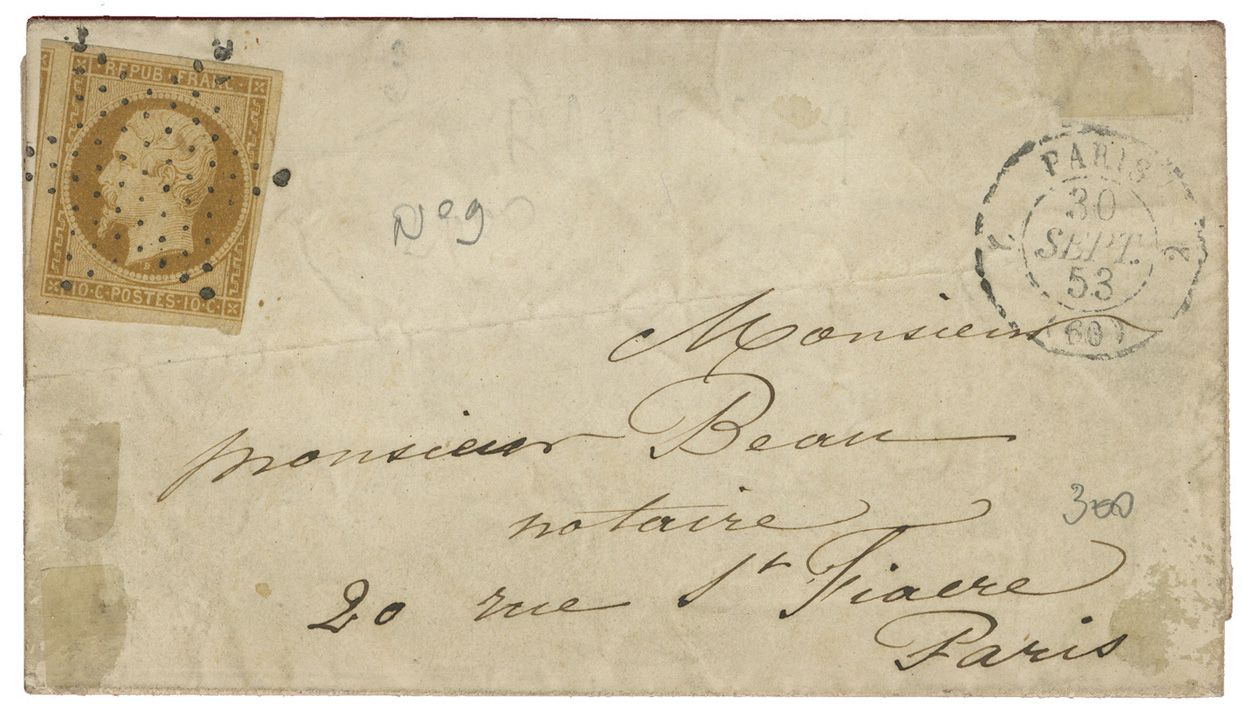 REPUB. FRANC.
10·C·POSTES·10·C.
PARIS
30
SEPT.
53
(60)
N°9
Monsieur
monsieur Beau
notaire
300
20 rue St Fiacre
Paris